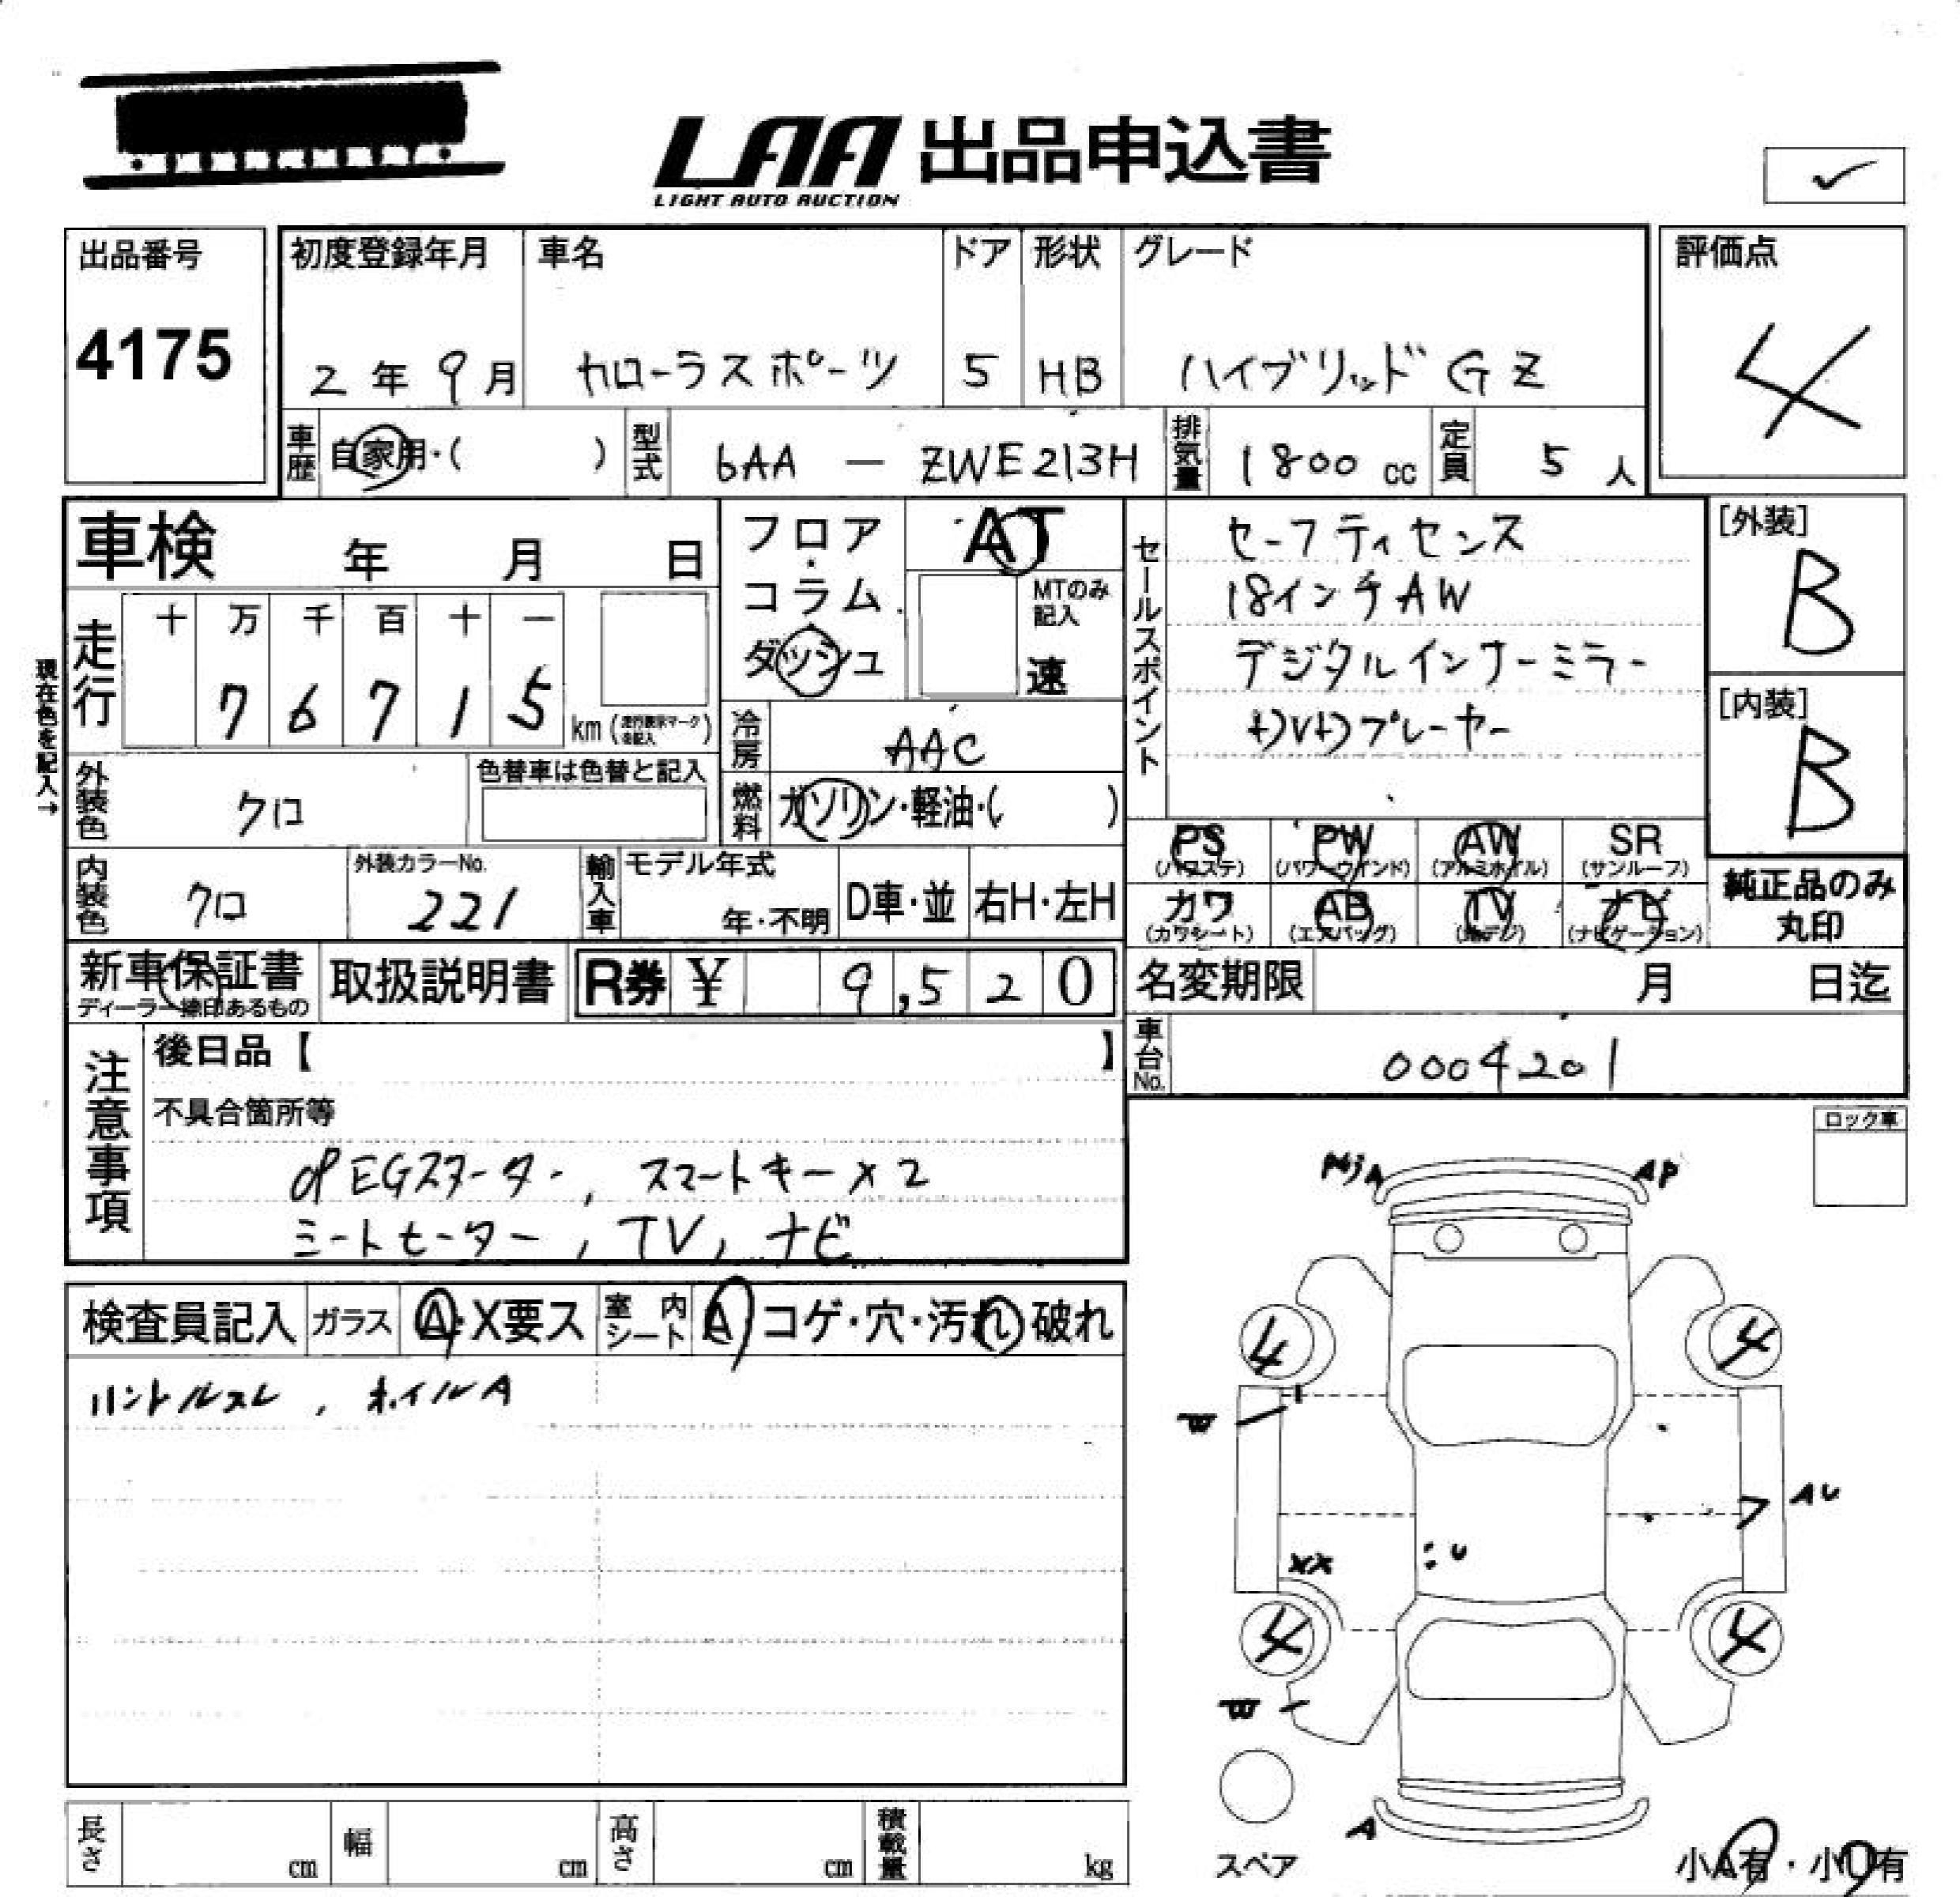 LAA 出品申込書
LIGHT AUTO AUCTION
✓
出品番号
4175
初度登録年月
2年9月
車名
カローラスポーツ
ドア
5
形状
HB
グレード
ハイブリッドGZ
評価点
4
車歴 自家用・( )
型式 6AA — ZWE213H
排気量 1800 cc
定員 5 人
車検 年 月 日
フロア・コラム・ダッシュ
AT
MTのみ記入
速
セールスポイント
セーフティセンス
18インチAW
デジタルインナーミラー
DVDプレーヤー
[外装]
B
[内装]
B
現在色を記入→
走行
十 万 千 百 十 一
7 6 7 1 5
km (走行表示マークを記入)
冷房 AAC
燃料 ガソリン・軽油・( )
外装色 クロ
色替車は色替と記入
内装色 クロ
外装カラーNo.
221
輸入車
モデル年式
年・不明
D車・並
右H・左H
PS (パワステ)
PW (パワーウインド)
AW (アルミホイル)
SR (サンルーフ)
カワ (カワシート)
AB (エアバッグ)
TV (地デジ)
ナビ (ナビゲーション)
純正品のみ丸印
新車保証書
ディーラー捺印あるもの
取扱説明書
R券 ¥ 9,520
名変期限 月 日迄
車台No. 0004201
注意事項
後日品【 】
不具合箇所等
EGスターター, スマートキー×2
シートヒーター, TV, ナビ
ロック車
検査員記入
ガラス A・X要ス
室内シート A コゲ・穴・汚れ・破れ
ハンドルスレ, ホイルA
A
AP
4
4
AU
XX
U
4
4
A
スペア
長さ cm
幅 cm
高さ cm
積載量 kg
小A有・小U有